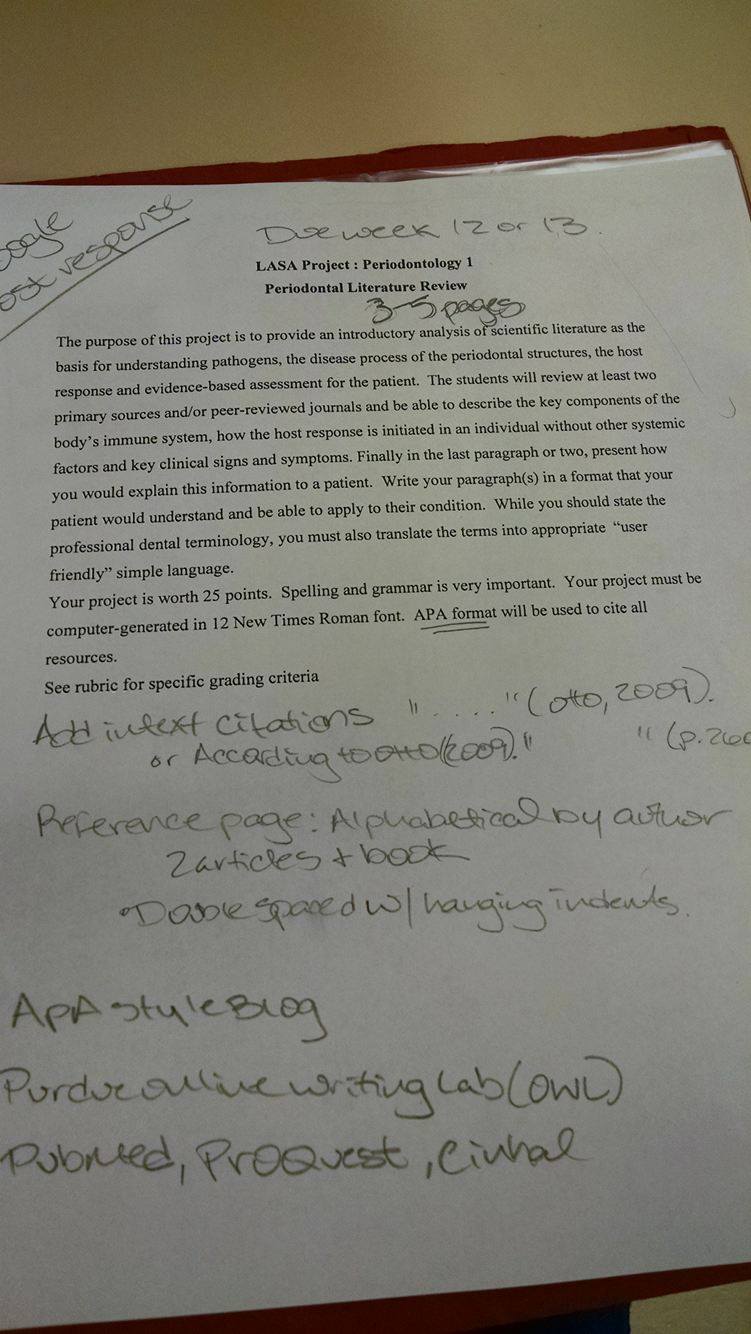 Due week 12 or 13.
response
LASA Project : Periodontology 1
Periodontal Literature Review
3-5 pages
The purpose of this project is to provide an introductory analysis of scientific literature as the
basis for understanding pathogens, the disease process of the periodontal structures, the host
response and evidence-based assessment for the patient. The students will review at least two
primary sources and/or peer-reviewed journals and be able to describe the key components of the
body's immune system, how the host response is initiated in an individual without other systemic
factors and key clinical signs and symptoms. Finally in the last paragraph or two, present how
you would explain this information to a patient. Write your paragraph(s) in a format that your
patient would understand and be able to apply to their condition. While you should state the
professional dental terminology, you must also translate the terms into appropriate "user
friendly" simple language.
Your project is worth 25 points. Spelling and grammar is very important. Your project must be
computer-generated in 12 New Times Roman font. APA format will be used to cite all
resources.
See rubric for specific grading criteria
Add intext citations " . . . . " (Otto, 2009).
or According to Otto (2009). " " (p. 260
Reference page: Alphabetical by author
2 articles + book
Double spaced w/ hanging indents.
APA style Blog
Purdue online writing Lab (OWL)
PubMed, ProQuest, Cinhal